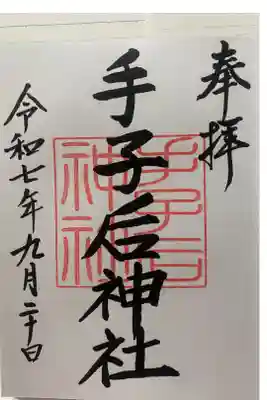 奉拝
手子后神社
手子后
神社
令和七年九月二十日